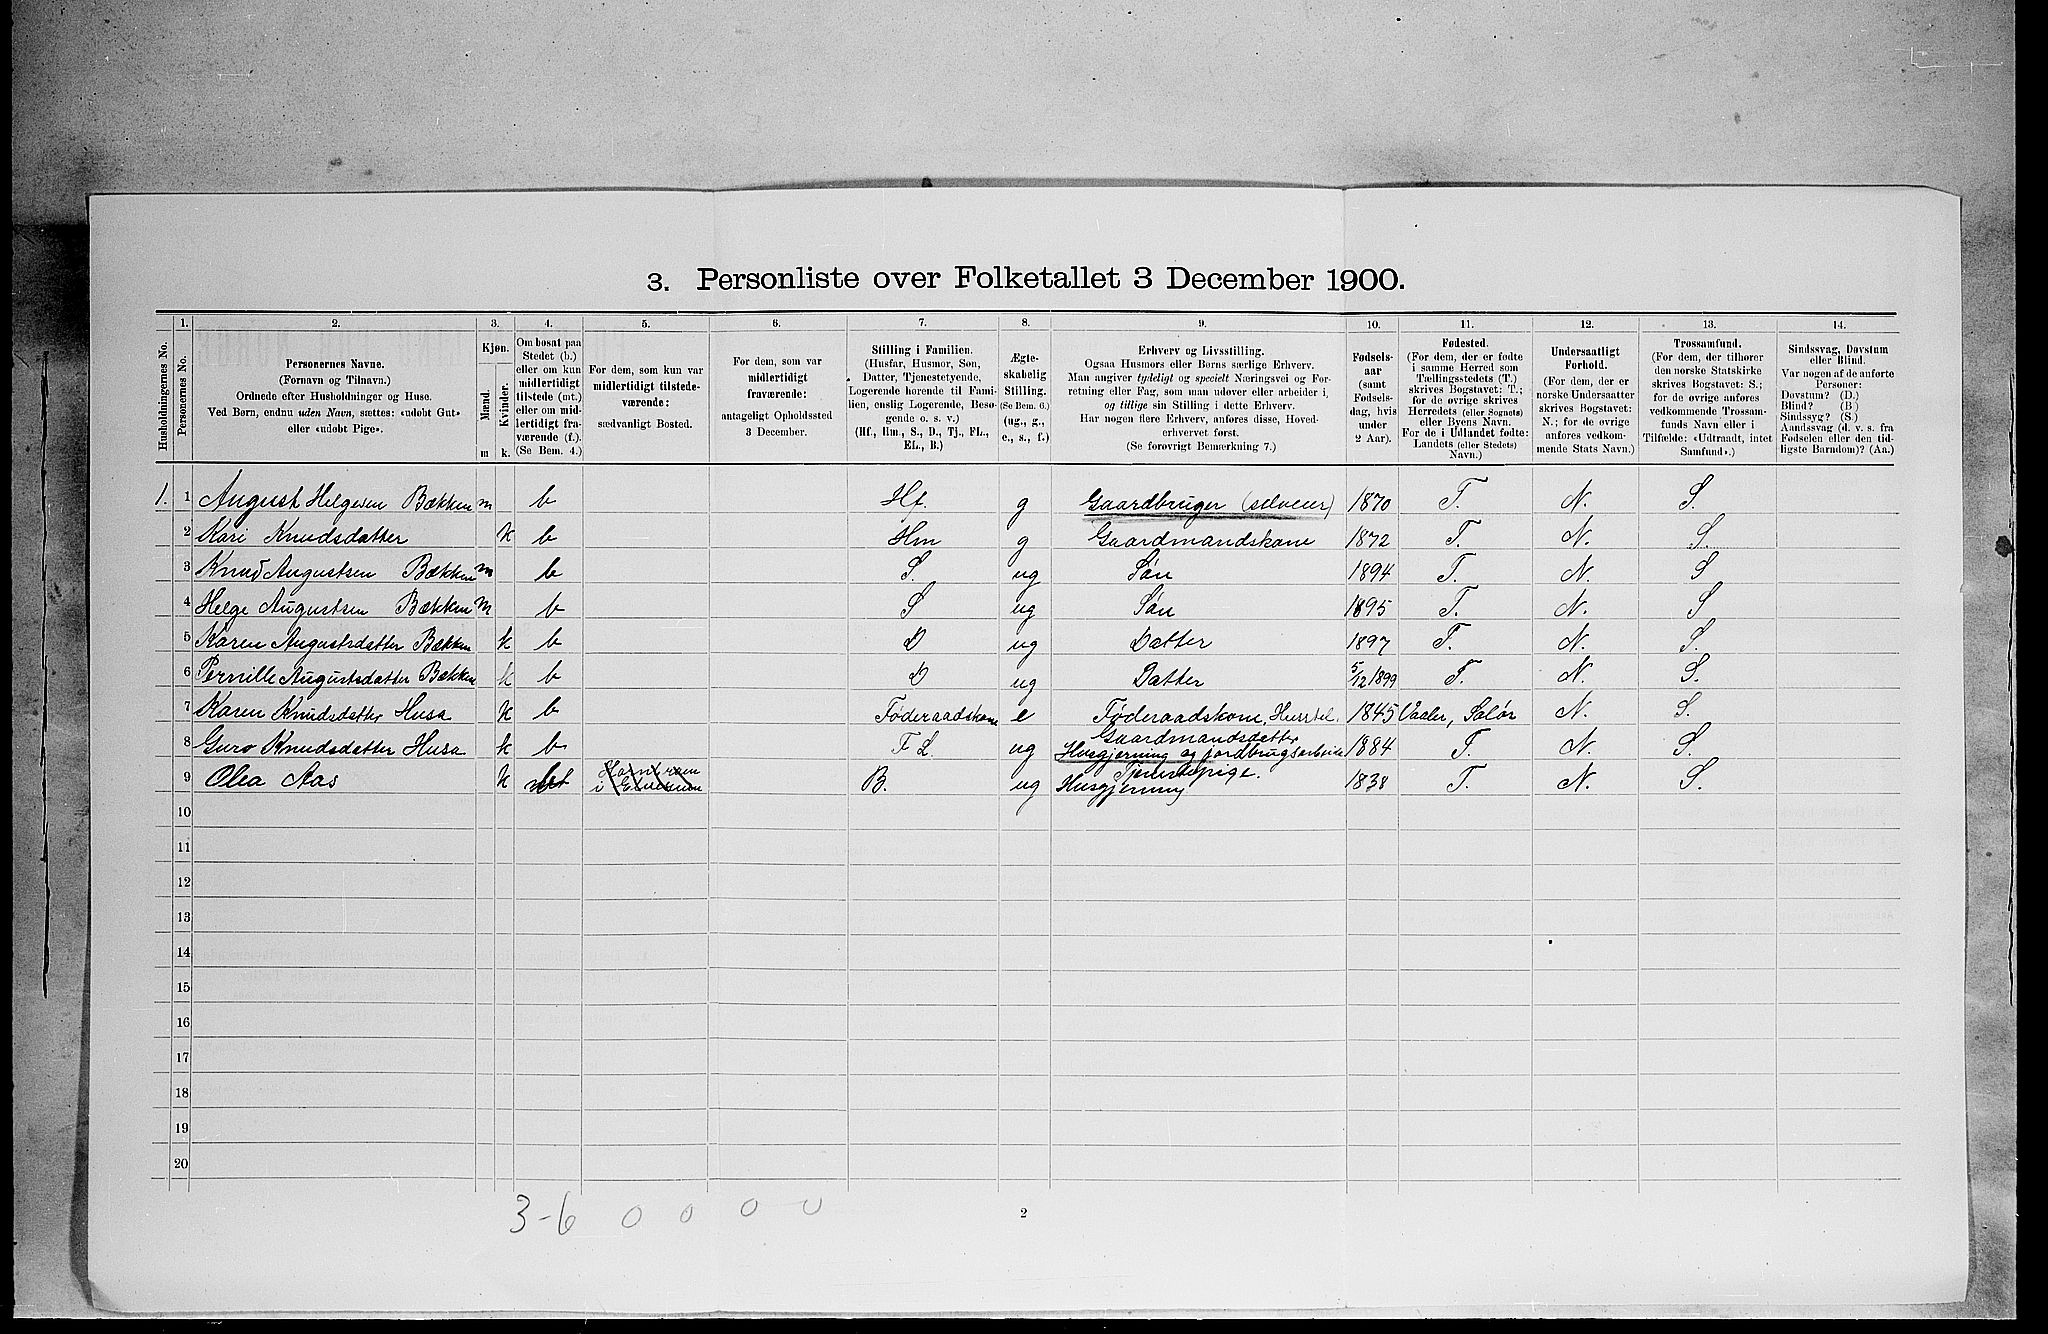 3. Personliste over Folketallet 3 December 1900.
1. 2. 3. 4. 5. 6. 7. 8. 9. 10. 11. 12. 13. 14.
Husholdningernes No.
Personernes No.
Personernes Navne.
(Fornavn og Tilnavn.)
Ordnede efter Husholdninger og Huse.
Ved Børn, endnu uden Navn, sættes: «udøbt Gut»
eller «udøbt Pige».
Kjøn.
Mænd.
Kvinder.
m k.
Om bosat paa
Stedet (b.)
eller om kun
midlertidigt
tilstede (mt.)
eller om mid-
lertidigt fra-
værende (f.).
(Se Bem. 4.)
For dem, som kun var
midlertidigt tilstede-
værende:
sædvanligt Bosted.
For dem, som var
midlertidigt
fraværende:
antageligt Opholdssted
3 December.
Stilling i Familien.
(Husfar, Husmor, Søn,
Datter, Tjenestetyende,
Logerende hørende til Fami-
lien, enslig Logerende, Besø-
gende o. s. v.)
(Hf., Hm., S., D., Tj., FL.,
EL., B.)
Ægte-
skabelig
Stilling.
(Se Bem. 6.)
(ug., g.,
e., s., f.)
Erhverv og Livsstilling.
Ogsaa Husmors eller Børns særlige Erhverv.
Man angiver tydeligt og specielt Næringsvei og For-
retning eller Fag, som man udøver eller arbeider i,
og tillige sin Stilling i dette Erhverv.
Har nogen flere Erhverv, anføres disse, Hoved-
erhvervet først.
(Se forøvrigt Bemærkning 7.)
Fødsels-
aar
(samt
Fødsels-
dag, hvis
under
2 Aar).
Fødested.
(For dem, der er fødte
i samme Herred som
Tællingsstedets (T.)
skrives Bogstavet: T.;
for de øvrige skrives
Herredets (eller Sognets)
eller Byens Navn.
For de i Udlandet fødte:
Landets (eller Stedets)
Navn.)
Undersaatligt
Forhold.
(For dem, der er
norske Undersaatter
skrives Bogstavet:
N.; for de øvrige
anføres vedkom-
mende Stats Navn.)
Trossamfund.
(For dem, der tilhører
den norske Statskirke
skrives Bogstavet: S.;
for de øvrige anføres
vedkommende Trossam-
funds Navn eller i
Tilfælde: «Udtraadt, intet
Samfund».)
Sindssvag, Døvstum
eller Blind.
Var nogen af de anførte
Personer:
Døvstum? (D.)
Blind? (B.)
Sindssyg? (S.)
Aandssvag (d. v. s. fra
Fødselen eller den tid-
ligste Barndom)? (Aa.)
1. 1 August Helgesen Bækken m b Hf. g Gaardbruger (selveier) 1870 T. N. S.
2 Kari Knudsdatter k b Hm g Gaardmandskone 1872 T. N. S.
3 Knud Augustsen Bækken m b S. ug Søn 1894 T. N. S
4 Helge Augustsen Bækken m b S ug Søn 1895 T. N. S
5 Karen Augustsdatter Bækken k b D ug Datter 1897 T. N. S.
6 Pernille Augustsdatter Bækken k b D ug Datter 5/12 1899 T. N. S.
7 Karen Knudsdatter Husa k b Føderaadskone e Føderaadskone, Husstel. 1845 Vaaler, Solør N. S.
8 Guro Knudsdatter Husa k b F L. ug Gaardmandsdatter
Husgjerning og jordbrugsarbeide 1884 T. N. S.
9 Olea Aas k i B. ug Tjenstepige.
Husgjerning 1838 T. N. S.
10
11
12
13
14
15
16
17
18
19
20
3-6 0 0 0 0
2